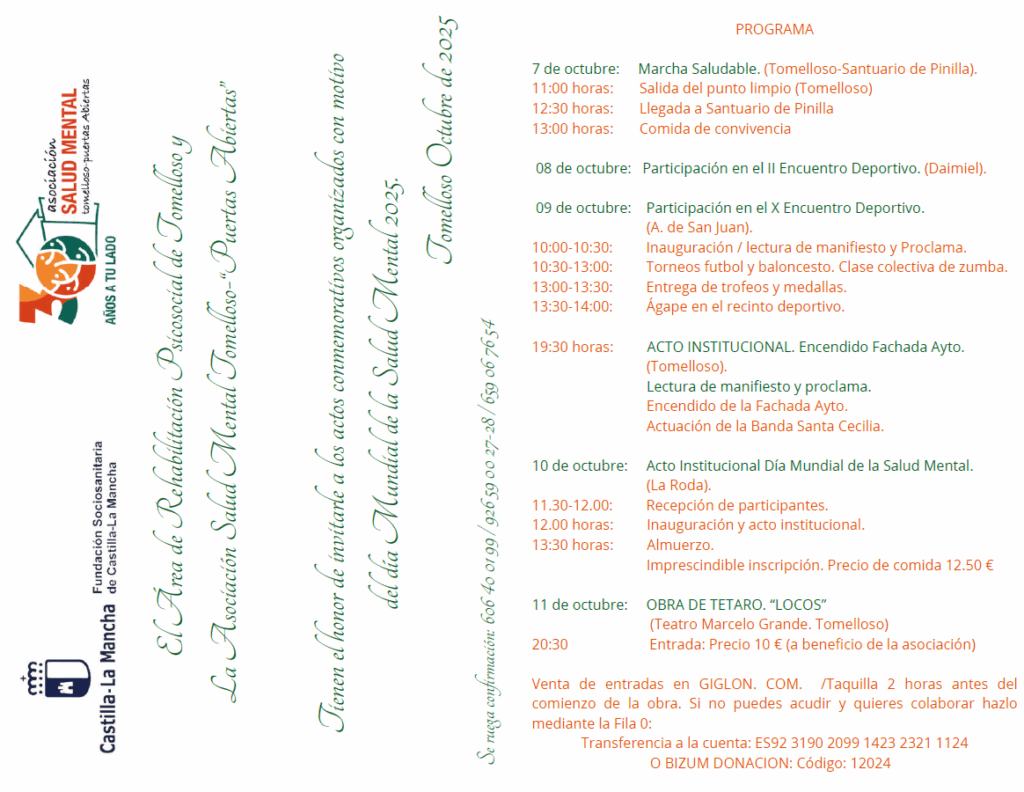 asociación
SALUD MENTAL
tomelloso-puertas Abiertas
30
AÑOS A TU LADO
Castilla-La Mancha
Fundación Sociosanitaria
de Castilla-La Mancha
El Área de Rehabilitación Psicosocial de Tomelloso y
La Asociación Salud Mental Tomelloso-“Puertas Abiertas”
Tienen el honor de invitarle a los actos conmemorativos organizados con motivo
del día Mundial de la Salud Mental 2025.
Tomelloso Octubre de 2025
Se ruega confirmación: 606 40 01 99 / 926 59 00 27-28 / 659 06 76 54
PROGRAMA
7 de octubre: Marcha Saludable. (Tomelloso-Santuario de Pinilla).
11:00 horas: Salida del punto limpio (Tomelloso)
12:30 horas: Llegada a Santuario de Pinilla
13:00 horas: Comida de convivencia
08 de octubre: Participación en el II Encuentro Deportivo. (Daimiel).
09 de octubre: Participación en el X Encuentro Deportivo.
(A. de San Juan).
10:00-10:30: Inauguración / lectura de manifiesto y Proclama.
10:30-13:00: Torneos futbol y baloncesto. Clase colectiva de zumba.
13:00-13:30: Entrega de trofeos y medallas.
13:30-14:00: Ágape en el recinto deportivo.
19:30 horas: ACTO INSTITUCIONAL. Encendido Fachada Ayto.
(Tomelloso).
Lectura de manifiesto y proclama.
Encendido de la Fachada Ayto.
Actuación de la Banda Santa Cecilia.
10 de octubre: Acto Institucional Día Mundial de la Salud Mental.
(La Roda).
11.30-12.00: Recepción de participantes.
12.00 horas: Inauguración y acto institucional.
13:30 horas: Almuerzo.
Imprescindible inscripción. Precio de comida 12.50 €
11 de octubre: OBRA DE TETARO. “LOCOS”
(Teatro Marcelo Grande. Tomelloso)
20:30 Entrada: Precio 10 € (a beneficio de la asociación)
Venta de entradas en GIGLON. COM. /Taquilla 2 horas antes del
comienzo de la obra. Si no puedes acudir y quieres colaborar hazlo
mediante la Fila 0:
Transferencia a la cuenta: ES92 3190 2099 1423 2321 1124
O BIZUM DONACION: Código: 12024